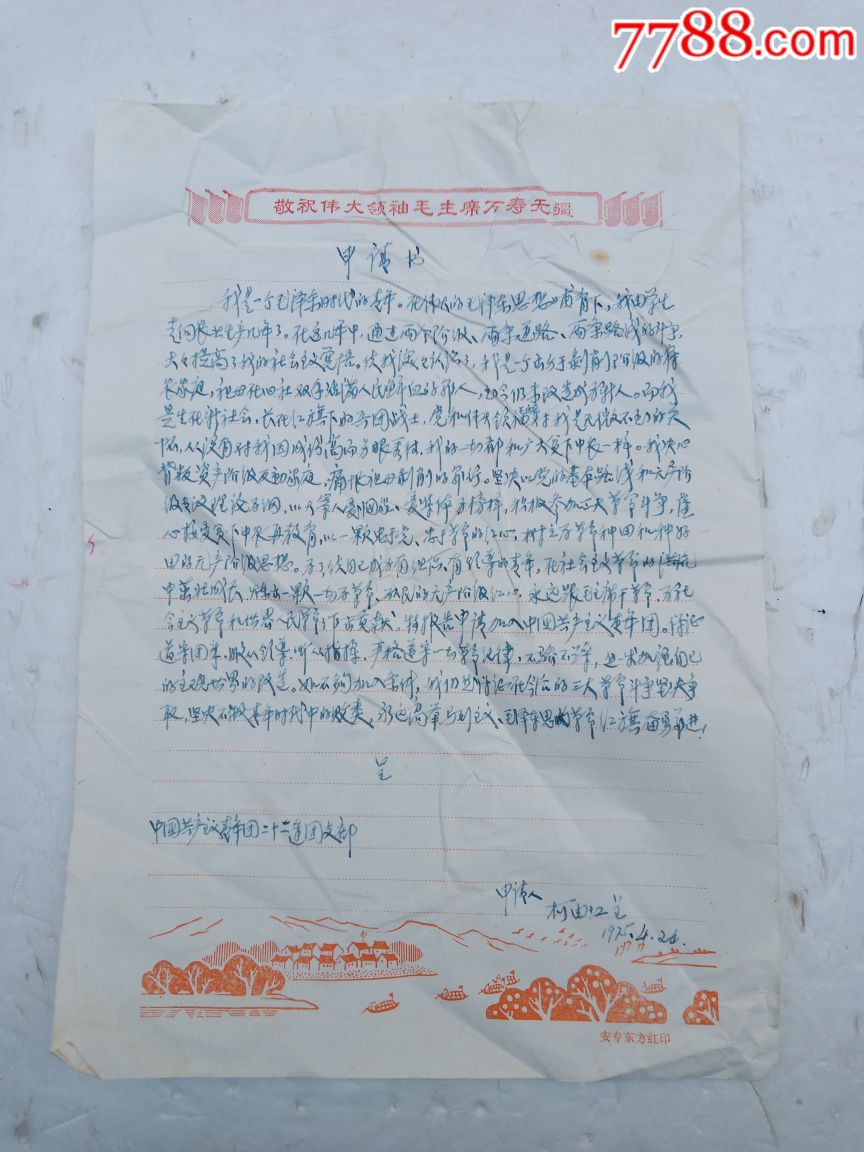 7788.com
敬祝伟大领袖毛主席万寿无疆
申请书
我是一个毛泽东时代的青年。在伟大的毛泽东思想哺育下，我由学生
走向农业生产几年了。在这几年中，通过两个阶级、两条道路、两条路线的斗争，
大大提高了我的社会主义觉悟。使我深深认识了，我是一个出身于剥削阶级的
农家庭，祖母在旧社双手沾满人民鲜血的罪人，至今仍未改造成新人。而我
是生在新社会，长在红旗下的兵团战士，党和伟大领袖对我是无微不至的关
怀，从没有对我因成份高而另眼看待，我的一切都和广大贫下中农一样。我决心
背叛资产阶级反动家庭，痛恨祖母剥削的罪行。坚决以党的基本路线和无产阶
级专政理论为纲，以为榜样，积极参加三大革命斗争，虚
心接受贫下中农再教育，以一颗忠于党、忠于革命的红心，树立为革命种田和种好
田的无产阶级思想。为了使自己成为有组织、有领导的青年，在社会主义革命的洪流
中茁壮成长，炼出一颗一切为革命、为人民的无产阶级红心，永远跟毛主席干革命，为社
会主义革命和世界人民革命作出贡献，特报告申请加入中国共产主义青年团。保证
遵守团章，服从领导，听从指挥，严格遵守一切革命纪律，不骄不躁，进一步加强自己
的主观世界的改造。如不够加入条件，我仍然保证在今后的三大革命斗争坚决争
取，坚决不做青年时代中的败类，永远高举马列主义、毛泽东思想革命红旗奋勇前进！
呈
中国共产主义青年团二十二连团支部
申请人
柯由江呈
1975.4.26.
安专东方红印